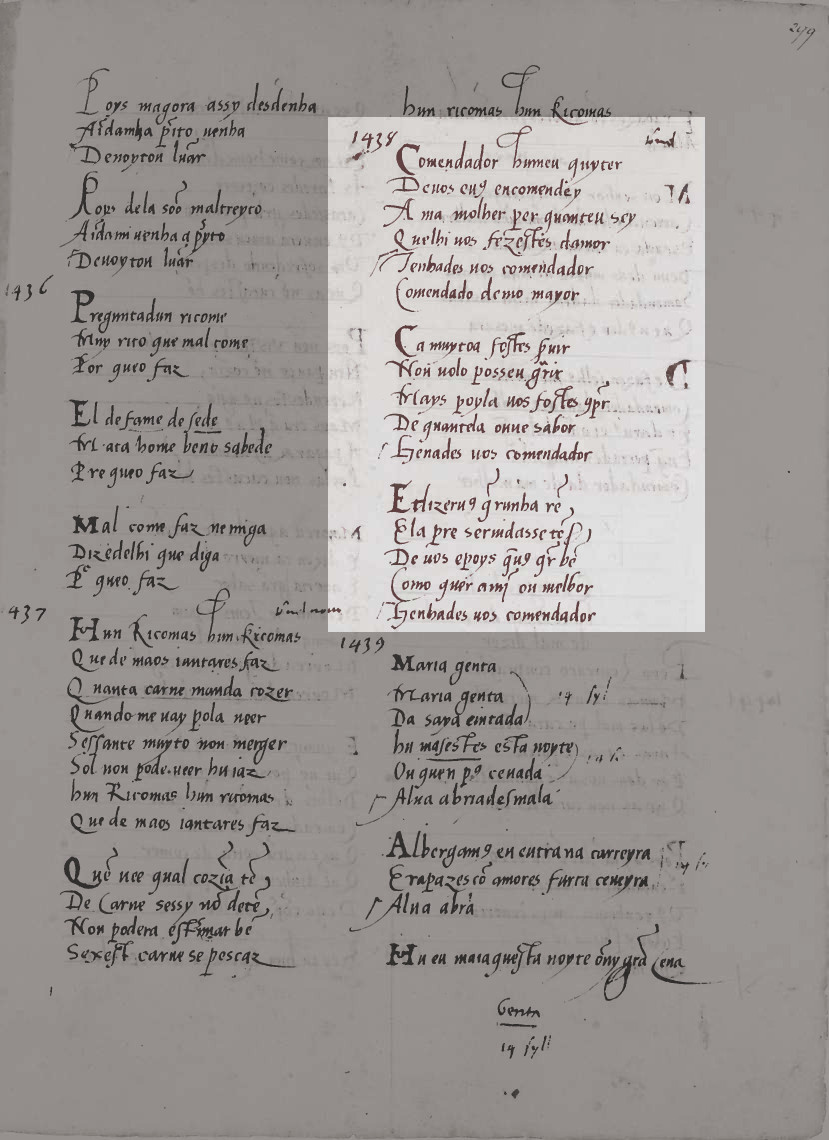 299
Poys magora assy desdenha
Aidamha pito uenha
Denoyton luar
Poys dela soo maltreyto
Aidami uenha a pyto
Denoyton luar
1436
Preguntadun ricome
Muy rico que mal come
Por queo faz
El de fame de sede
Mata home beno sabede
Pre queo faz
Mal come faz nemiga
Dizedelhi que diga
Pr queo faz
1437
Hun Ricomas hun Ricomas
Que de maos iantares faz
Quanta carne manda cozer
Quando me uay pola ueer
Sessante muyto non merger
Sol non pode ueer hu iaz
hun Ricomas hun ricomas
Que de maos iantares faz
Quē uee qual cozīa tē
De Carne sessy nō detē
Non podera estimar bē
Sexest carne se pescaz
hun ricomas hun Ricomas
1438
Comendador humeu quyter
De uos eu9 encomendey
A ma molher per quanteu sey
Quelhi uos fezestes damor
Tenhades uos comendador
Comendado demo mayor
Ca muytoa fostes puir
Non uolo posseu grir
Mays poyla uos fostes 9pr
De quantela ouue sabor
Tenades uos comendador
Et dizeru9 grunha rē
Ela pre seruidasse tē
De uos epoys qu9 qr bē
Como quer amj ou melhor
Tenhades uos comendador
1439
Maria genta
Maria genta
Da saya cintada
14 syl
hu masestes esta noyte
Ou quen p9 ceuada
Alua abriades mala
Albergam9 eu eutra na carreyra
Erapazes cō amores furta ceueyra
Alua abra
Hu eu maiaquesta noyte ouuy gra cena
Genta
14 syll